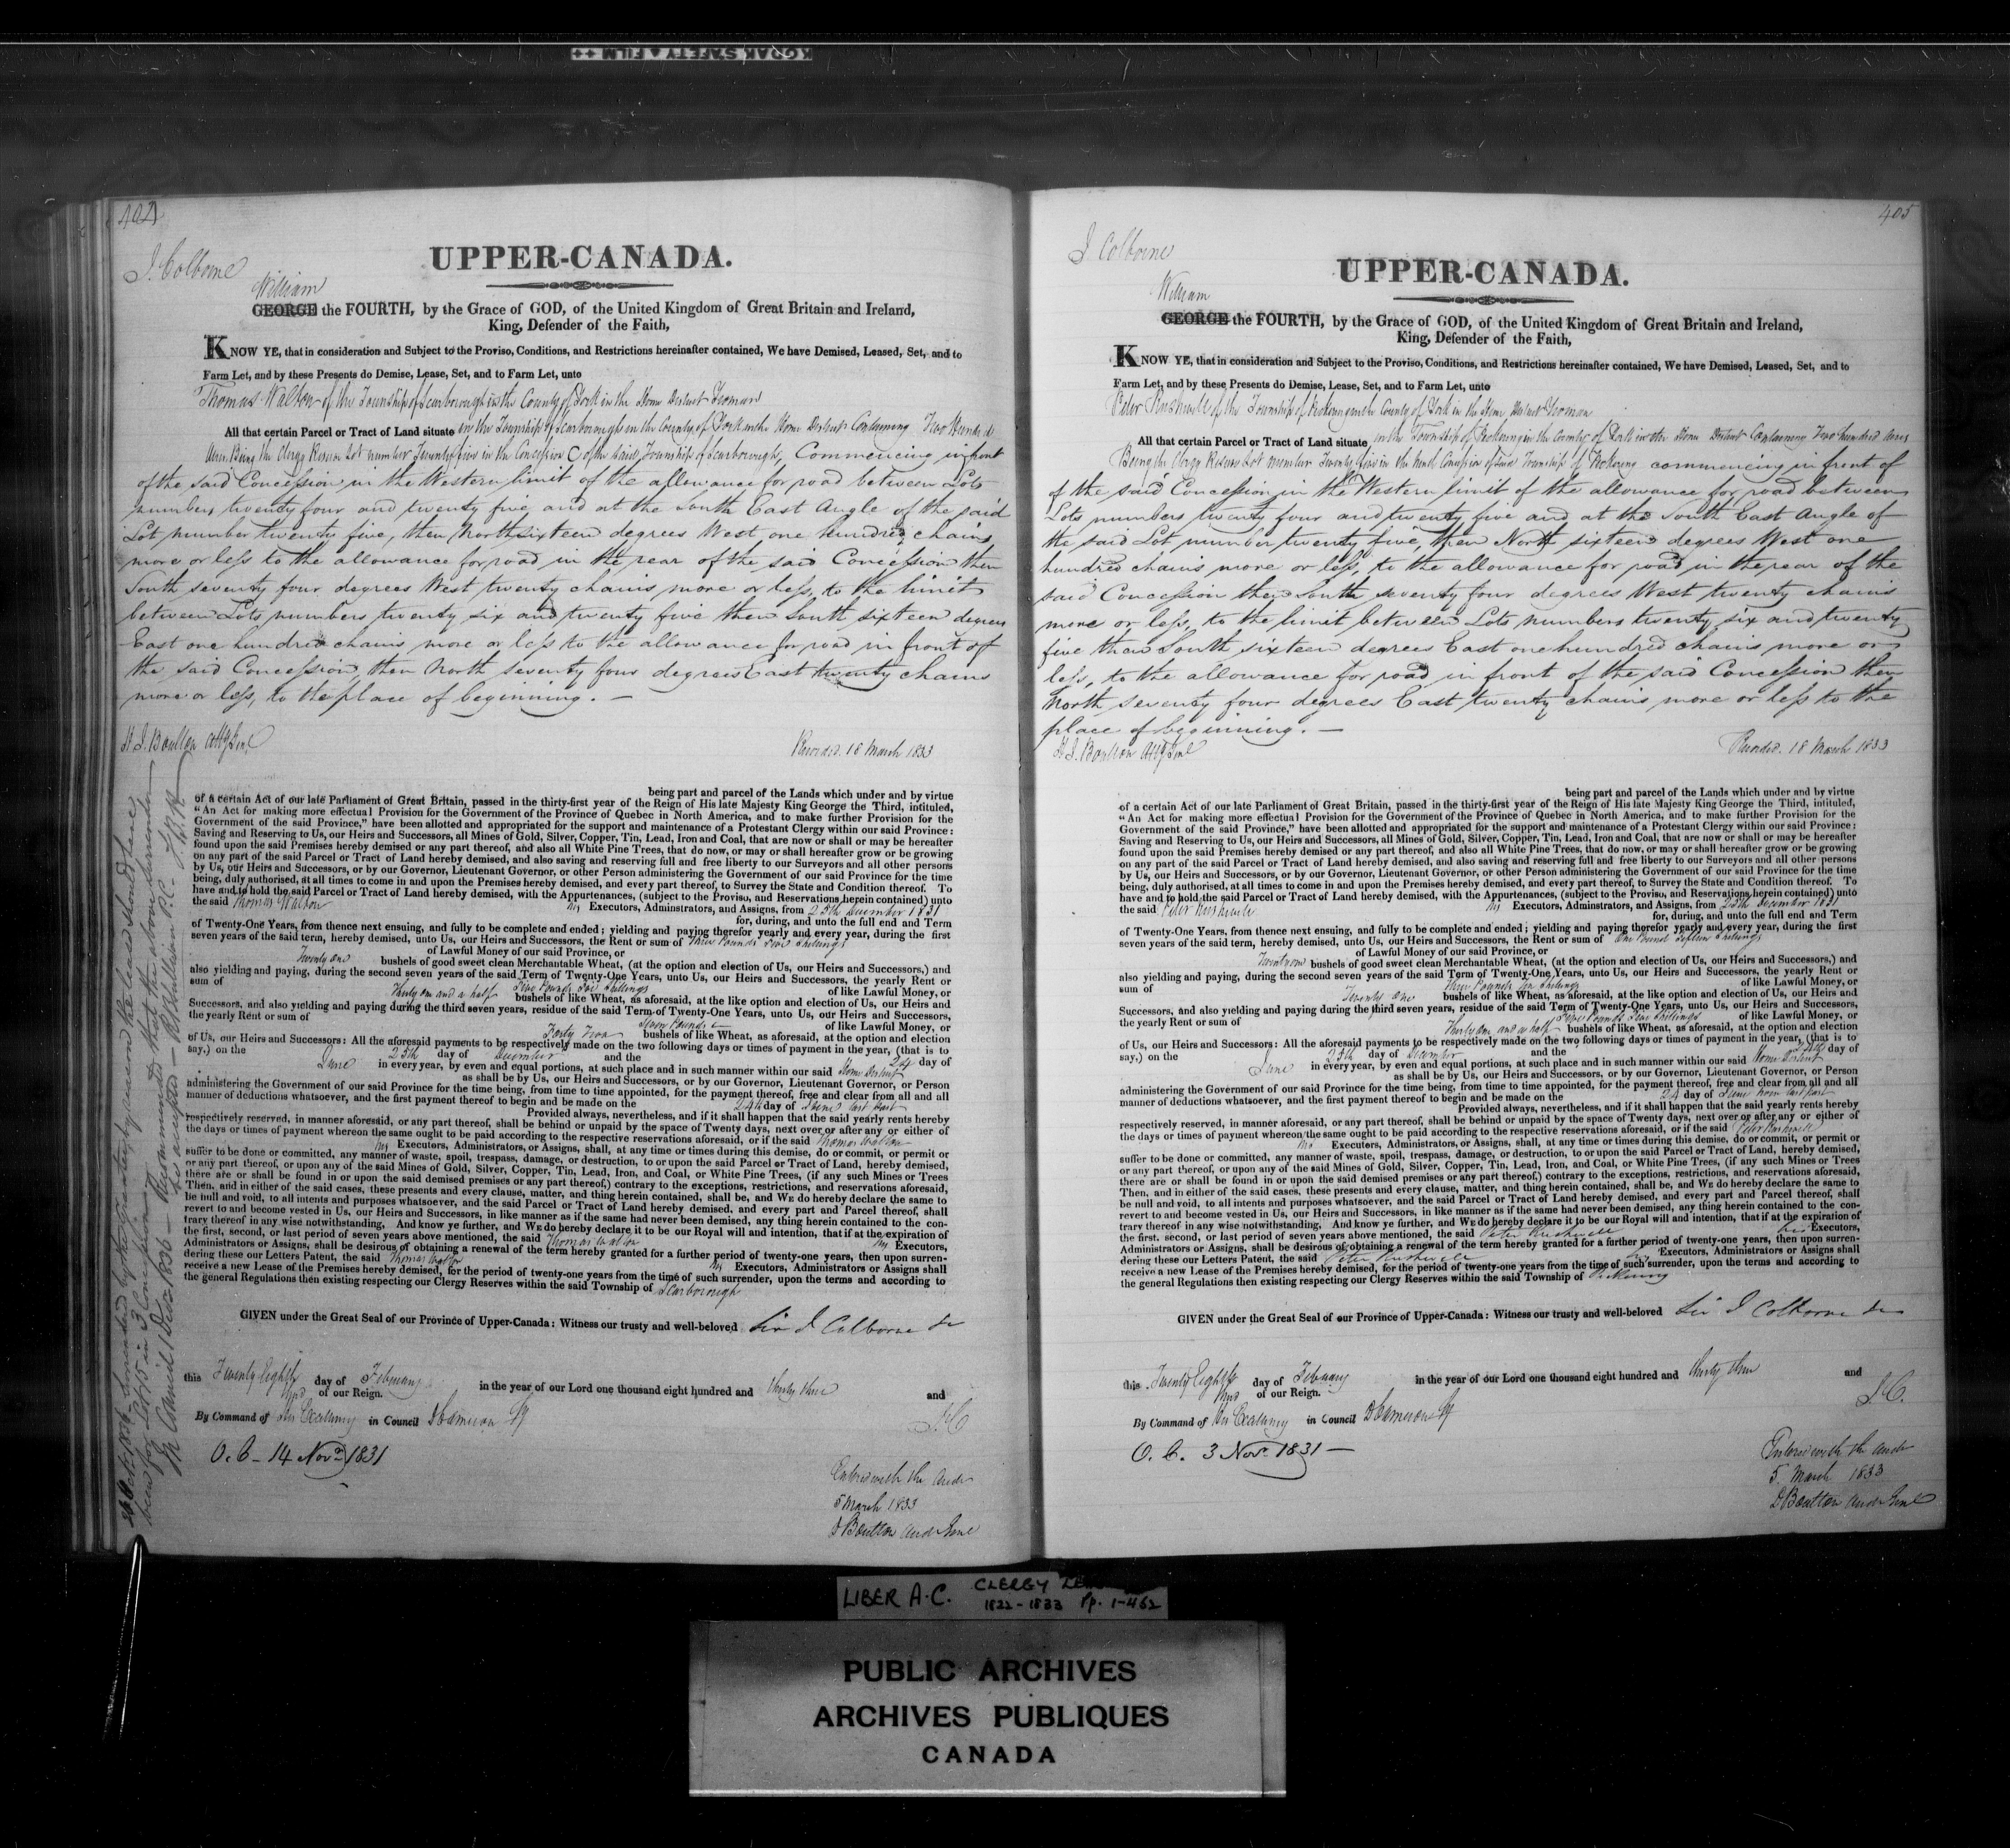 KODAK SAFETY FILM ++
404
J. Colborne
UPPER-CANADA.
William
GEORGE the FOURTH, by the Grace of GOD, of the United Kingdom of Great Britain and Ireland,
King, Defender of the Faith,
KNOW YE, that in consideration and Subject to the Proviso, Conditions, and Restrictions hereinafter contained, We have Demised, Leased, Set, and to
Farm Let, and by these Presents do Demise, Lease, Set, and to Farm Let, unto
Thomas Walton of the Township of Scarborough in the County of York in the Home District Yeoman
All that certain Parcel or Tract of Land situate in the Township of Scarborough in the County of York in the Home District Containing Two Hundred
Acres Being the Clergy Reserve Lot number Twenty five in the Concession C of the said Township of Scarborough, Commencing in front
of the said Concession in the Western limit of the allowance for road between Lots
numbers twenty four and twenty five and at the South East Angle of the said
Lot number twenty five, then North sixteen degrees West one hundred chains
more or less to the allowance for road in the rear of the said Concession then
South seventy four degrees West twenty chains more or less, to the limit
between Lots numbers twenty six and twenty five then South sixteen degrees
East one hundred chains more or less to the allowance for road in front of
the said Concession, then North seventy four degrees East twenty chains
more or less, to the place of beginning. —
H. J. Boulton Atty Genl
Recorded. 18 March 1833
being part and parcel of the Lands which under and by virtue
of a certain Act of our late Parliament of Great Britain, passed in the thirty-first year of the Reign of His late Majesty King George the Third, intituled,
"An Act for making more effectual Provision for the Government of the Province of Quebec in North America, and to make further Provision for the
Government of the said Province," have been allotted and appropriated for the support and maintenance of a Protestant Clergy within our said Province:
Saving and Reserving to Us, our Heirs and Successors, all Mines of Gold, Silver, Copper, Tin, Lead, Iron and Coal, that are now or shall or may be hereafter
found upon the said Premises hereby demised or any part thereof, and also all White Pine Trees, that do now, or may or shall hereafter grow or be growing
on any part of the said Parcel or Tract of Land hereby demised, and also saving and reserving full and free liberty to our Surveyors and all other persons
by Us, our Heirs and Successors, or by our Governor, Lieutenant Governor, or other Person administering the Government of our said Province for the time
being, duly authorised, at all times to come in and upon the Premises hereby demised, and every part thereof, to Survey the State and Condition thereof. To
have and to hold the said Parcel or Tract of Land hereby demised, with the Appurtenances, (subject to the Proviso, and Reservations herein contained) unto
the said Thomas Walton his Executors, Administrators, and Assigns, from 25th December 1831
for, during, and unto the full end and Term
of Twenty-One Years, from thence next ensuing, and fully to be complete and ended; yielding and paying therefor yearly and every year, during the first
seven years of the said term, hereby demised, unto Us, our Heirs and Successors, the Rent or sum of Three Pounds Ten Shillings
of Lawful Money of our said Province, or
Twenty one bushels of good sweet clean Merchantable Wheat, (at the option and election of Us, our Heirs and Successors,) and
also yielding and paying, during the second seven years of the said Term of Twenty-One Years, unto Us, our Heirs and Successors, the yearly Rent or
sum of Five Pounds Five Shillings of like Lawful Money, or
Thirty one and a half bushels of like Wheat, as aforesaid, at the like option and election of Us, our Heirs and
Successors, and also yielding and paying during the third seven years, residue of the said Term of Twenty-One Years, unto Us, our Heirs and Successors,
the yearly Rent or sum of Seven Pounds of like Lawful Money, or
Forty Two bushels of like Wheat, as aforesaid, at the option and election
of Us, our Heirs and Successors: All the aforesaid payments to be respectively made on the two following days or times of payment in the year, (that is to
say,) on the 25th day of December and the 24 day of
June in every year, by even and equal portions, at such place and in such manner within our said Home District
as shall be by Us, our Heirs and Successors, or by our Governor, Lieutenant Governor, or Person
administering the Government of our said Province for the time being, from time to time appointed, for the payment thereof, free and clear from all and all
manner of deductions whatsoever, and the first payment thereof to begin and be made on the 24th day of June last past
Provided always, nevertheless, and if it shall happen that the said yearly rents hereby
respectively reserved, in manner aforesaid, or any part thereof, shall be behind or unpaid by the space of Twenty days, next over or after any or either of
the days or times of payment whereon the same ought to be paid according to the respective reservations aforesaid, or if the said Thomas Walton
his Executors, Administrators, or Assigns, shall, at any time or times during this demise, do or commit, or permit or
suffer to be done or committed, any manner of waste, spoil, trespass, damage, or destruction, to or upon the said Parcel or Tract of Land, hereby demised,
or any part thereof, or upon any of the said Mines of Gold, Silver, Copper, Tin, Lead, Iron, and Coal, or White Pine Trees, (if any such Mines or Trees
there are or shall be found in or upon the said demised premises or any part thereof,) contrary to the exceptions, restrictions, and reservations aforesaid,
Then, and in either of the said cases, these presents and every clause, matter, and thing herein contained, shall be, and WE do hereby declare the same to
be null and void, to all intents and purposes whatsoever, and the said Parcel or Tract of Land hereby demised, and every part and Parcel thereof, shall
revert to and become vested in Us, our Heirs and Successors, in like manner as if the same had never been demised, any thing herein contained to the con-
trary thereof in any wise notwithstanding. And know ye further, and WE do hereby declare it to be our Royal will and intention, that if at the expiration of
the first, second, or last period of seven years above mentioned, the said Thomas Walton his Executors,
Administrators or Assigns, shall be desirous of obtaining a renewal of the term hereby granted for a further period of twenty-one years, then upon surren-
dering these our Letters Patent, the said Thomas Walton his Executors, Administrators or Assigns shall
receive a new Lease of the Premises hereby demised, for the period of twenty-one years from the time of such surrender, upon the terms and according to
the general Regulations then existing respecting our Clergy Reserves within the said Township of Scarborough
GIVEN under the Great Seal of our Province of Upper-Canada: Witness our trusty and well-beloved Sir J Colborne &c
this Twenty Eighth day of February in the year of our Lord one thousand eight hundred and thirty three and
third of our Reign.
By Command of His Excellency in Council D Cameron Sy
J.C
O. C. 14 Novr 1831
Entered with the Audr
5 March 1833
J Boulton Audr Genl
In Council 1 Decr 1836 — Recommended that the above surrender
be accepted — R B Sullivan P.C.
405
J Colborne
UPPER-CANADA.
William
GEORGE the FOURTH, by the Grace of GOD, of the United Kingdom of Great Britain and Ireland,
King, Defender of the Faith,
KNOW YE, that in consideration and Subject to the Proviso, Conditions, and Restrictions hereinafter contained, We have Demised, Leased, Set, and to
Farm Let, and by these Presents do Demise, Lease, Set, and to Farm Let, unto
Peter Rushnell of the Township of Pickering in the County of York in the Home District Yeoman
All that certain Parcel or Tract of Land situate in the Township of Pickering in the County of York in the Home District Containing Two hundred Acres
Being the Clergy Reserve Lot number Twenty five in the Ninth Concession of said Township of Pickering commencing in front of
of the said Concession in the Western limit of the allowance for road between
Lots numbers twenty four and twenty five and at the South East Angle of
the said Lot number twenty five, then North sixteen degrees West one
hundred chains more or less, to the allowance for road in the rear of the
said Concession then South seventy four degrees West twenty chains
more or less, to the limit between Lots numbers twenty six and twenty
five then South sixteen degrees East one hundred chains more or
less, to the allowance for road in front of the said Concession then
North seventy four degrees East twenty chains more or less to the
place of beginning. —
H. J. Boulton Atty Genl
Recorded. 18 March 1833
being part and parcel of the Lands which under and by virtue
of a certain Act of our late Parliament of Great Britain, passed in the thirty-first year of the Reign of His late Majesty King George the Third, intituled,
"An Act for making more effectual Provision for the Government of the Province of Quebec in North America, and to make further Provision for the
Government of the said Province," have been allotted and appropriated for the support and maintenance of a Protestant Clergy within our said Province:
Saving and Reserving to Us, our Heirs and Successors, all Mines of Gold, Silver, Copper, Tin, Lead, Iron and Coal, that are now or shall or may be hereafter
found upon the said Premises hereby demised or any part thereof, and also all White Pine Trees, that do now, or may or shall hereafter grow or be growing
on any part of the said Parcel or Tract of Land hereby demised, and also saving and reserving full and free liberty to our Surveyors and all other persons
by Us, our Heirs and Successors, or by our Governor, Lieutenant Governor, or other Person administering the Government of our said Province for the time
being, duly authorised, at all times to come in and upon the Premises hereby demised, and every part thereof, to Survey the State and Condition thereof. To
have and to hold the said Parcel or Tract of Land hereby demised, with the Appurtenances, (subject to the Proviso, and Reservations herein contained) unto
the said Peter Rushnell his Executors, Administrators, and Assigns, from 25th December 1831
for, during, and unto the full end and Term
of Twenty-One Years, from thence next ensuing, and fully to be complete and ended; yielding and paying therefor yearly and every year, during the first
seven years of the said term, hereby demised, unto Us, our Heirs and Successors, the Rent or sum of One Pound Fifteen Shillings
of Lawful Money of our said Province, or
bushels of good sweet clean Merchantable Wheat, (at the option and election of Us, our Heirs and Successors,) and
also yielding and paying, during the second seven years of the said Term of Twenty-One Years, unto Us, our Heirs and Successors, the yearly Rent or
sum of Three Pounds Ten Shillings of like Lawful Money, or
Twenty One bushels of like Wheat, as aforesaid, at the like option and election of Us, our Heirs and
Successors, and also yielding and paying during the third seven years, residue of the said Term of Twenty-One Years, unto Us, our Heirs and Successors,
the yearly Rent or sum of Five Pounds Five Shillings of like Lawful Money, or
Thirty One and a half bushels of like Wheat, as aforesaid, at the option and election
of Us, our Heirs and Successors: All the aforesaid payments to be respectively made on the two following days or times of payment in the year, (that is to
say,) on the 25th day of December and the 24th day of
June in every year, by even and equal portions, at such place and in such manner within our said Home District
as shall be by Us, our Heirs and Successors, or by our Governor, Lieutenant Governor, or Person
administering the Government of our said Province for the time being, from time to time appointed, for the payment thereof, free and clear from all and all
manner of deductions whatsoever, and the first payment thereof to begin and be made on the 24 day of June now last past
Provided always, nevertheless, and if it shall happen that the said yearly rents hereby
respectively reserved, in manner aforesaid, or any part thereof, shall be behind or unpaid by the space of Twenty days, next over or after any or either of
the days or times of payment whereon the same ought to be paid according to the respective reservations aforesaid, or if the said Peter Rushnell
his Executors, Administrators, or Assigns, shall, at any time or times during this demise, do or commit, or permit or
suffer to be done or committed, any manner of waste, spoil, trespass, damage, or destruction, to or upon the said Parcel or Tract of Land, hereby demised,
or any part thereof, or upon any of the said Mines of Gold, Silver, Copper, Tin, Lead, Iron, and Coal, or White Pine Trees, (if any such Mines or Trees
there are or shall be found in or upon the said demised premises or any part thereof,) contrary to the exceptions, restrictions, and reservations aforesaid,
Then, and in either of the said cases, these presents and every clause, matter, and thing herein contained, shall be, and WE do hereby declare the same to
be null and void, to all intents and purposes whatsoever, and the said Parcel or Tract of Land hereby demised, and every part and Parcel thereof, shall
revert to and become vested in Us, our Heirs and Successors, in like manner as if the same had never been demised, any thing herein contained to the con-
trary thereof in any wise notwithstanding. And know ye further, and WE do hereby declare it to be our Royal will and intention, that if at the expiration of
the first, second, or last period of seven years above mentioned, the said Peter Rushnell his Executors,
Administrators or Assigns, shall be desirous of obtaining a renewal of the term hereby granted for a further period of twenty-one years, then upon surren-
dering these our Letters Patent, the said Peter Rushnell his Executors, Administrators or Assigns shall
receive a new Lease of the Premises hereby demised, for the period of twenty-one years from the time of such surrender, upon the terms and according to
the general Regulations then existing respecting our Clergy Reserves within the said Township of Pickering
GIVEN under the Great Seal of our Province of Upper-Canada: Witness our trusty and well-beloved Sir J Colborne &c
this Twenty Eighth day of February in the year of our Lord one thousand eight hundred and thirty three and
third of our Reign.
By Command of His Excellency in Council D Cameron Sy
J.C.
O. C. 3 Novr 1831 —
Entered with the Audr
5 March 1833
J Boulton Audr Genl
LIBER A.C. CLERGY
1822-1833 Pp. 1-462
PUBLIC ARCHIVES
ARCHIVES PUBLIQUES
CANADA